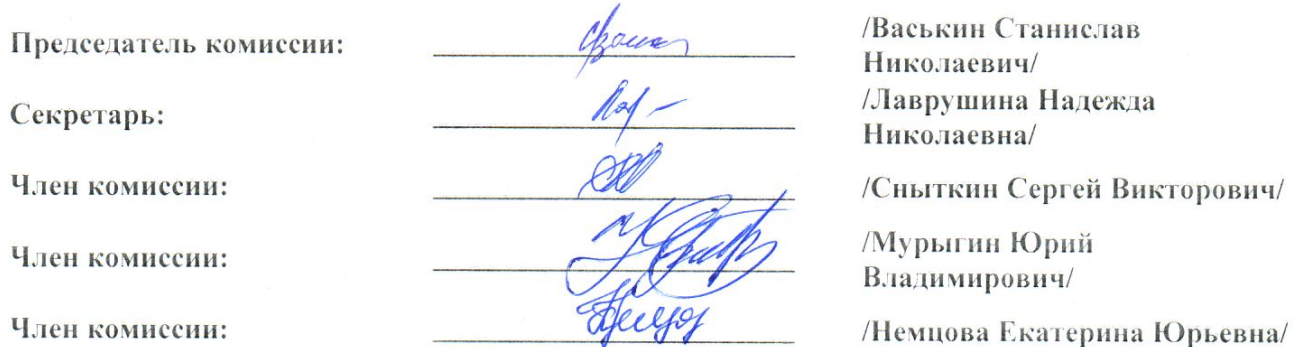 Председатель комиссии: /Васькин Станислав
Николаевич/
Секретарь: /Лаврушина Надежда
Николаевна/
Член комиссии: /Сныткин Сергей Викторович/
Член комиссии: /Мурыгин Юрий
Владимирович/
Член комиссии: /Немцова Екатерина Юрьевна/